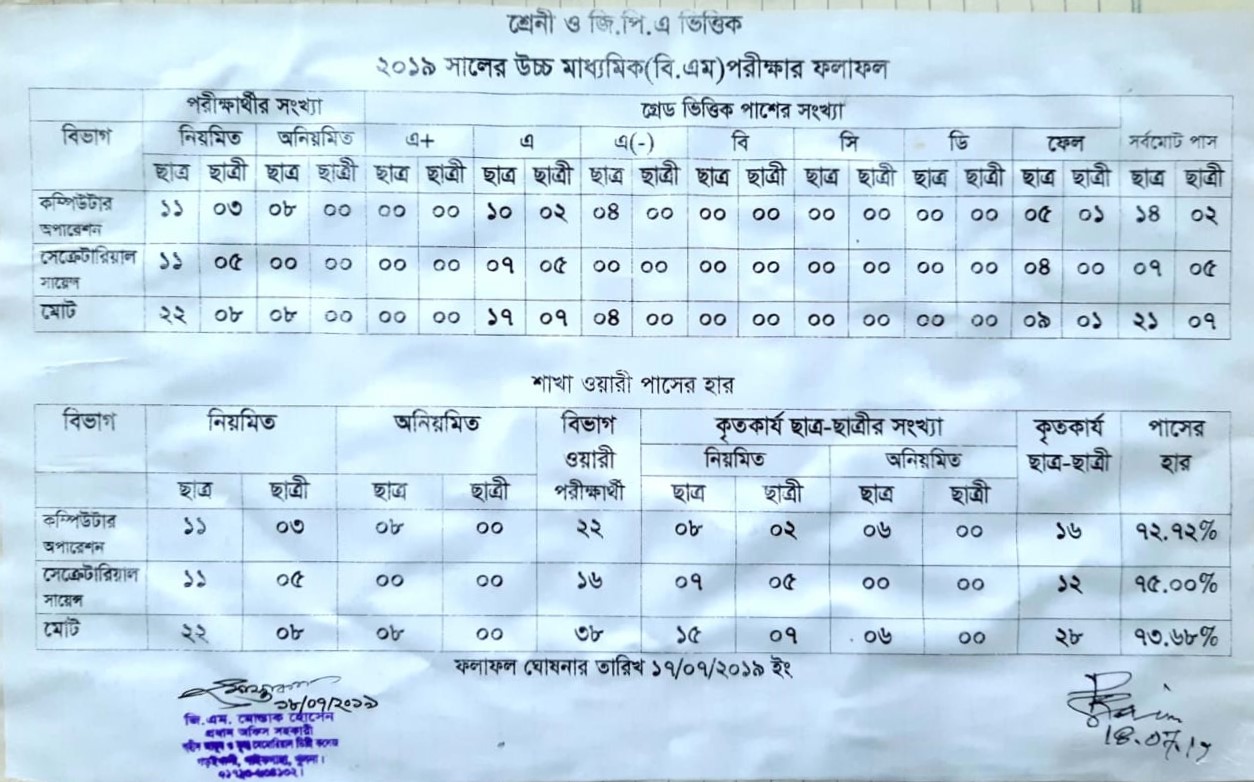 শ্রেনী ও জি.পি.এ ভিত্তিক
২০১৯ সালের উচ্চ মাধ্যমিক(বি.এম)পরীক্ষার ফলাফল
বিভাগ পরীক্ষার্থীর সংখ্যা গ্রেড ভিত্তিক পাশের সংখ্যা সর্বমোট পাস
নিয়মিত অনিয়মিত এ+ এ এ(-) বি সি ডি ফেল
ছাত্র ছাত্রী ছাত্র ছাত্রী ছাত্র ছাত্রী ছাত্র ছাত্রী ছাত্র ছাত্রী ছাত্র ছাত্রী ছাত্র ছাত্রী ছাত্র ছাত্রী ছাত্র ছাত্রী ছাত্র ছাত্রী
কম্পিউটার অপারেশন ১১ ০৩ ০৮ ০০ ০০ ০০ ১০ ০২ ০৪ ০০ ০০ ০০ ০০ ০০ ০০ ০০ ০৫ ০১ ১৪ ০২
সেক্রেটারিয়াল সায়েন্স ১১ ০৫ ০০ ০০ ০০ ০০ ০৭ ০৫ ০০ ০০ ০০ ০০ ০০ ০০ ০০ ০০ ০৪ ০০ ০৭ ০৫
মোট ২২ ০৮ ০৮ ০০ ০০ ০০ ১৭ ০৭ ০৪ ০০ ০০ ০০ ০০ ০০ ০০ ০০ ০৯ ০১ ২১ ০৭
শাখা ওয়ারী পাসের হার
বিভাগ নিয়মিত অনিয়মিত বিভাগ ওয়ারী পরীক্ষার্থী কৃতকার্য ছাত্র-ছাত্রীর সংখ্যা কৃতকার্য ছাত্র-ছাত্রী পাসের হার
নিয়মিত অনিয়মিত
ছাত্র ছাত্রী ছাত্র ছাত্রী ছাত্র ছাত্রী ছাত্র ছাত্রী
কম্পিউটার অপারেশন ১১ ০৩ ০৮ ০০ ২২ ০৮ ০২ ০৬ ০০ ১৬ ৭২.৭২%
সেক্রেটারিয়াল সায়েন্স ১১ ০৫ ০০ ০০ ১৬ ০৭ ০৫ ০০ ০০ ১২ ৭৫.০০%
মোট ২২ ০৮ ০৮ ০০ ৩৮ ১৫ ০৭ ০৬ ০০ ২৮ ৭৩.৬৮%
ফলাফল ঘোষনার তারিখ ১৭/০৭/২০১৯ ইং
১৮/০৭/২০১৯
জি.এম. মোস্তাক হোসেন
প্রধান অফিস সহকারী
18.07.19